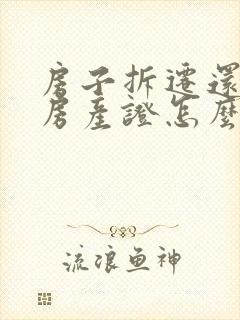 房子拆遷還
房産證怎麼
流浪鱼神